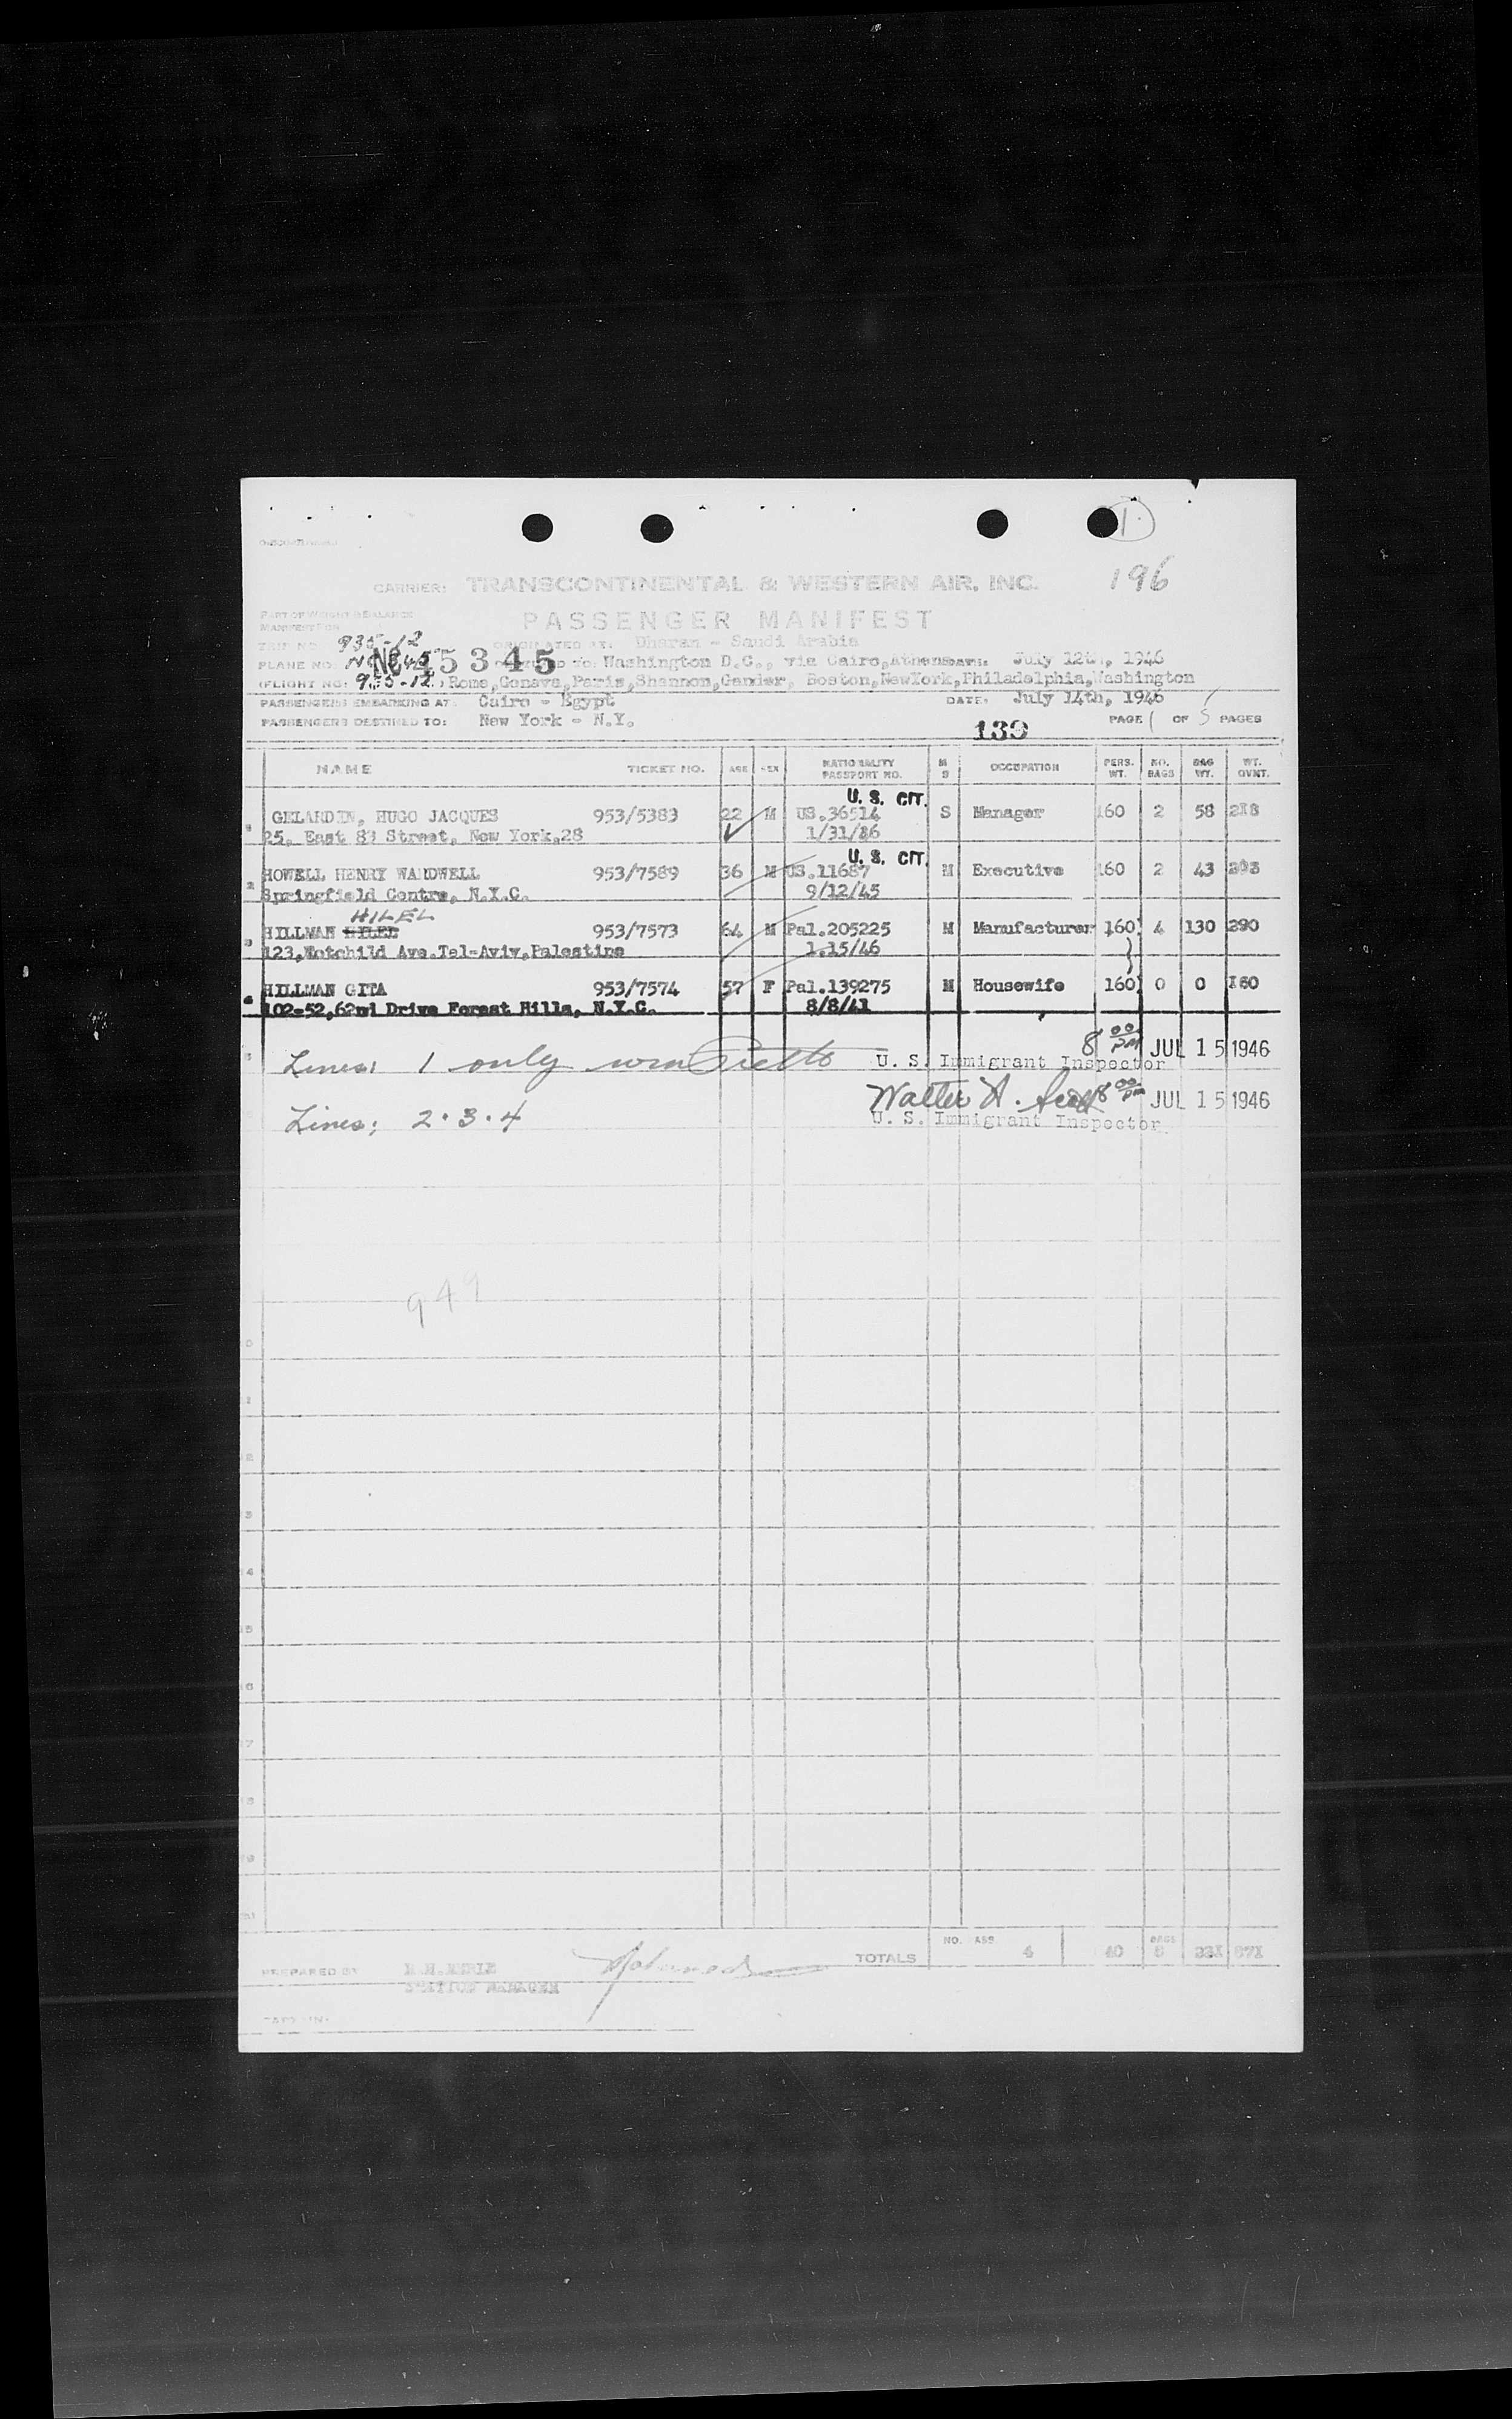 1
196
CARRIER: TRANSCONTINENTAL & WESTERN AIR, INC.
PART OF WEIGHT & BALANCE
MANIFEST FOR
PASSENGER MANIFEST
TRIP NO. 935-12 ORIGINATED AT: Dharan - Saudi Arabia
PLANE NO. NC 45345 Washington D.C., via Cairo,Athens DATE: July 12th, 1946
(FLIGHT NO: 935-12) Rome,Geneva,Paris,Shannon,Gander, Boston,NewYork,Philadelphia,Washington
PASSENGERS EMBARKING AT: Cairo - Egypt DATE: July 14th, 1946
PASSENGERS DESTINED TO: New York - N.Y. 139 PAGE 1 OF 5 PAGES
NAME TICKET NO. AGE SEX NATIONALITY PASSPORT NO. M S OCCUPATION PERS. WT. NO. BAGS BAG WT. WT. OVWT.
U. S. CIT.
GELARDIN, HUGO JACQUES 953/5383 22 M US.36514 S Manager 160 2 58 218
25, East 83 Street, New York,28 1/31/86
U. S. CIT.
HOWELL HENRY WARDWELL 953/7589 36 M US.11687 M Executive 160 2 43 203
Springfield Centre, N.Y.C. 9/12/45
HILEL
HILLMAN 953/7573 64 M Pal.205225 M Manufacturer 160 4 130 290
123,Rotchild Ave.Tel-Aviv,Palestine 1.15/46
HILLMAN GITA 953/7574 57 F Pal.139275 M Housewife 160 0 0 160
102-52,62nd Drive Forest Hills, N.Y.C. 8/8/41
8 00 PM JUL 15 1946
Lines: 1 only U. S. Immigrant Inspector
Walter A. 8 00 PM JUL 15 1946
Lines: 2.3.4 U. S. Immigrant Inspector
949
TOTALS NO. 4 40 BAGS 8 231 871
PREPARED BY
STATION MANAGER